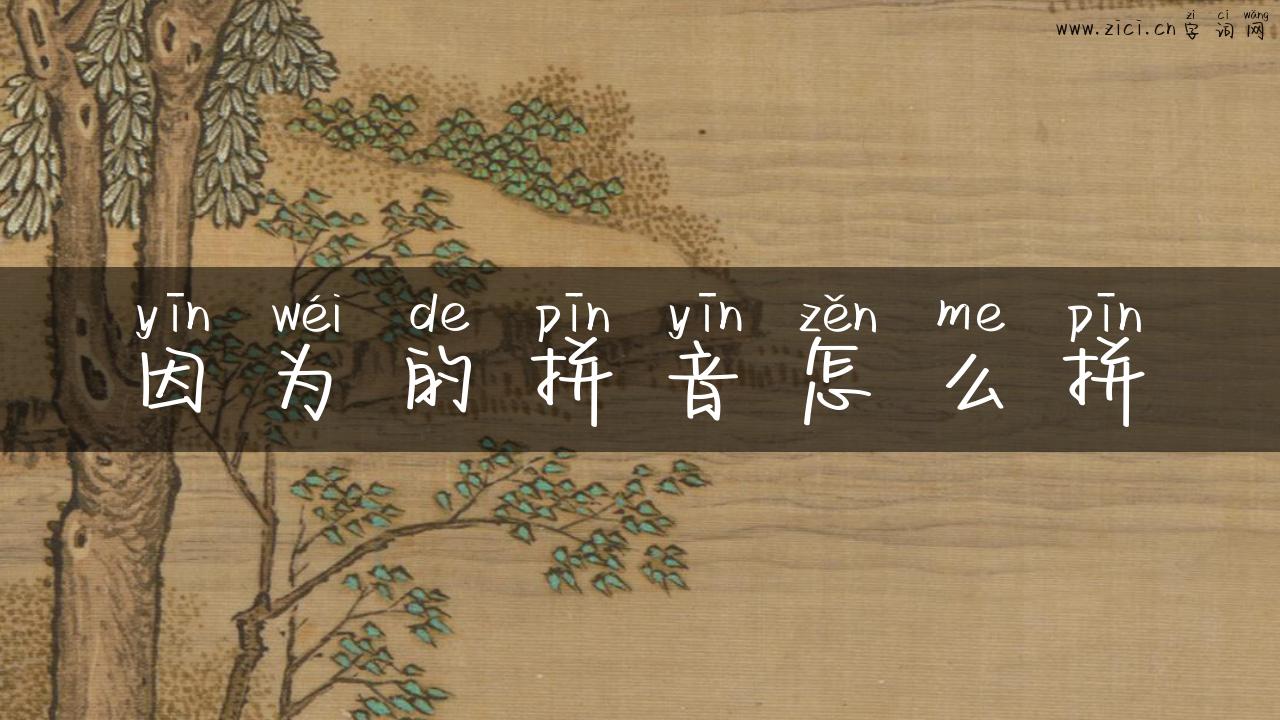 zì cí wǎng
www.zici.cn 字词网
yīn wéi de pīn yīn zěn me pīn
因为的拼音怎么拼